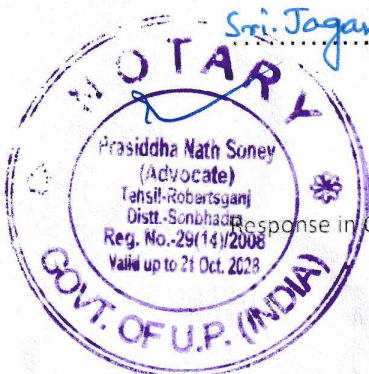 Sri. Jagan
NOTARY
Prasiddha Nath Soney
(Advocate)
Tehsil-Robertsganj
Distt.-Sonbhadra
Response in
Reg. No.-29(14)/2008
Valid up to 21 Oct. 2028
GOVT. OF U.P. (INDIA)